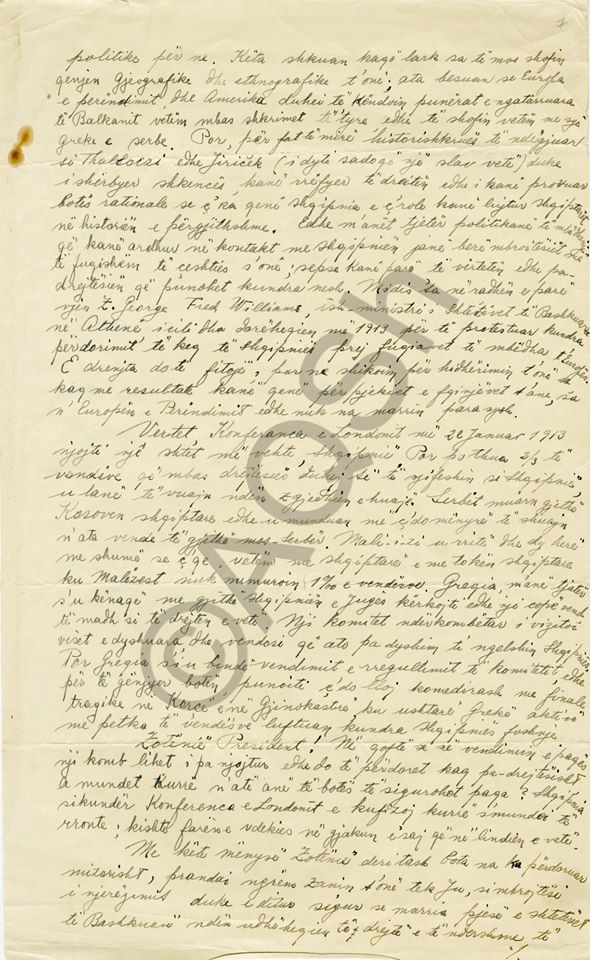 politike për ne. Këta shkuan kaqë lark sa të mos shofin
qenjen gjeografike dhe ethnografike t'onë; ata besuan se Europa
e perëndimit, dhe Amerika duhei të këndoin punërat e ngatarruara
të Balkanit vetëm mbas shkrimet të tyre edhe të shofin vetëm me syë
greke e serbe. Por, për fat të mirë historishkruës të ndëgjuar
si Thallóczi edhe Jiriçek (i dyti sadoqë një slav vetë) duke
i shërbyer shkencës, kanë rrëfyer të drejtën edhe i kanë provuar
botës rationale se ç'ka qenë Shqipnia e ç'role kanë lujtur Shqiptarët
në historien e përgjithshme. Edhe m'anët tjetër politikanë të mbëdhej
që kanë ardhur në kontakt me Shqipnien janë bërë mbrojtësit
të fuqishëm të çeshties s'onë; sepse kanë parë të vërtetën edhe pa-
drejtësien që punohet kundra nesh. Midis sa në radhën e parë
vjen Z. George Fred Williams, ish-ministri i Shtetevet të Bashkuara
në Athenë i cili dha dorëheqien më 1913 për të protestuar kundra
përdorimit të keq të Shqipniës prej fuqiavet të mbëdha t'Europës
E drejta do të fitojë; por na shikoim për hidhërimin t'onë se
kaq me resultate kanë qenë përpjekiet e fqinjëvet t'ane, sa
n'Europën e Perëndimit edhe nuk na marrin parasysh.
Vërtet, Konferenca e Londonit më 22 Januar 1913
njojti një shtet më vehte, Shqipnië. Por po thua 2/3 të
vendeve që mbas drejtësiës duhej të njifeshin si Shqipnië,
u lanë të vuajn ndën zgjedhën e huajë. Serbët muarn gjithë
Kosoven shqiptare edhe u munduan me ç'do mënyrë të shuajn
n'ata vende të gjithë mos-Serbër. Mali-izi u rrit dhe dy herë
me shumë se ç'qe, vetëm me shqiptarë e me tokën shqiptare
ku Malazest nuk numuroin 1% e vendësve. Greqia, m'anë tjatër
s'u kënaqë me gjithë Shqipnien e Jugës kërkojti edhe një copë vend
të madh si të drejtën e vetë. Një komitet ndërkombëtar i vizitoi
viset e dyshuara dhe vendosi që ato pa dyshim t'i ngelshin Shqipniës
Por Greqia s'iu bind vendimit e rregullimit të komitetit, edhe
për të gënjyer botën punoiti ç'do lloj komedirash me finale
tragike në Korçë e në Gjinokastrë, ku ushtarë Grekë aktivë
me petka të vendësve luftuan kundra Shqipniës foshnje.
Zotënië President! Në qoftë se në vendimin e paqës
një komb lihet i pa njojtur edhe do të përdoret kaq pa-drejtësisht
a mundet kurrë n'atë anë të botës të sigurohet paqa? Shqipnia
sikundër Konferenca e Londonit e kufizoj kurrë s'mundej të
rronte; kishte farën e vdekies në gjakun e saj që në lindien e vetë.
Me këtë mënyrë Zotënië deri tash bota na ka përdoruar
mizorisht, prandai ngrëmë zanin t'onë tek Ju, si mbrojtësi
i njerëzimit duke e ditur sigur se marria pjesë e shtetevet
të Bashkuarë ndën udhëheqien të drejtë e të ndershme të